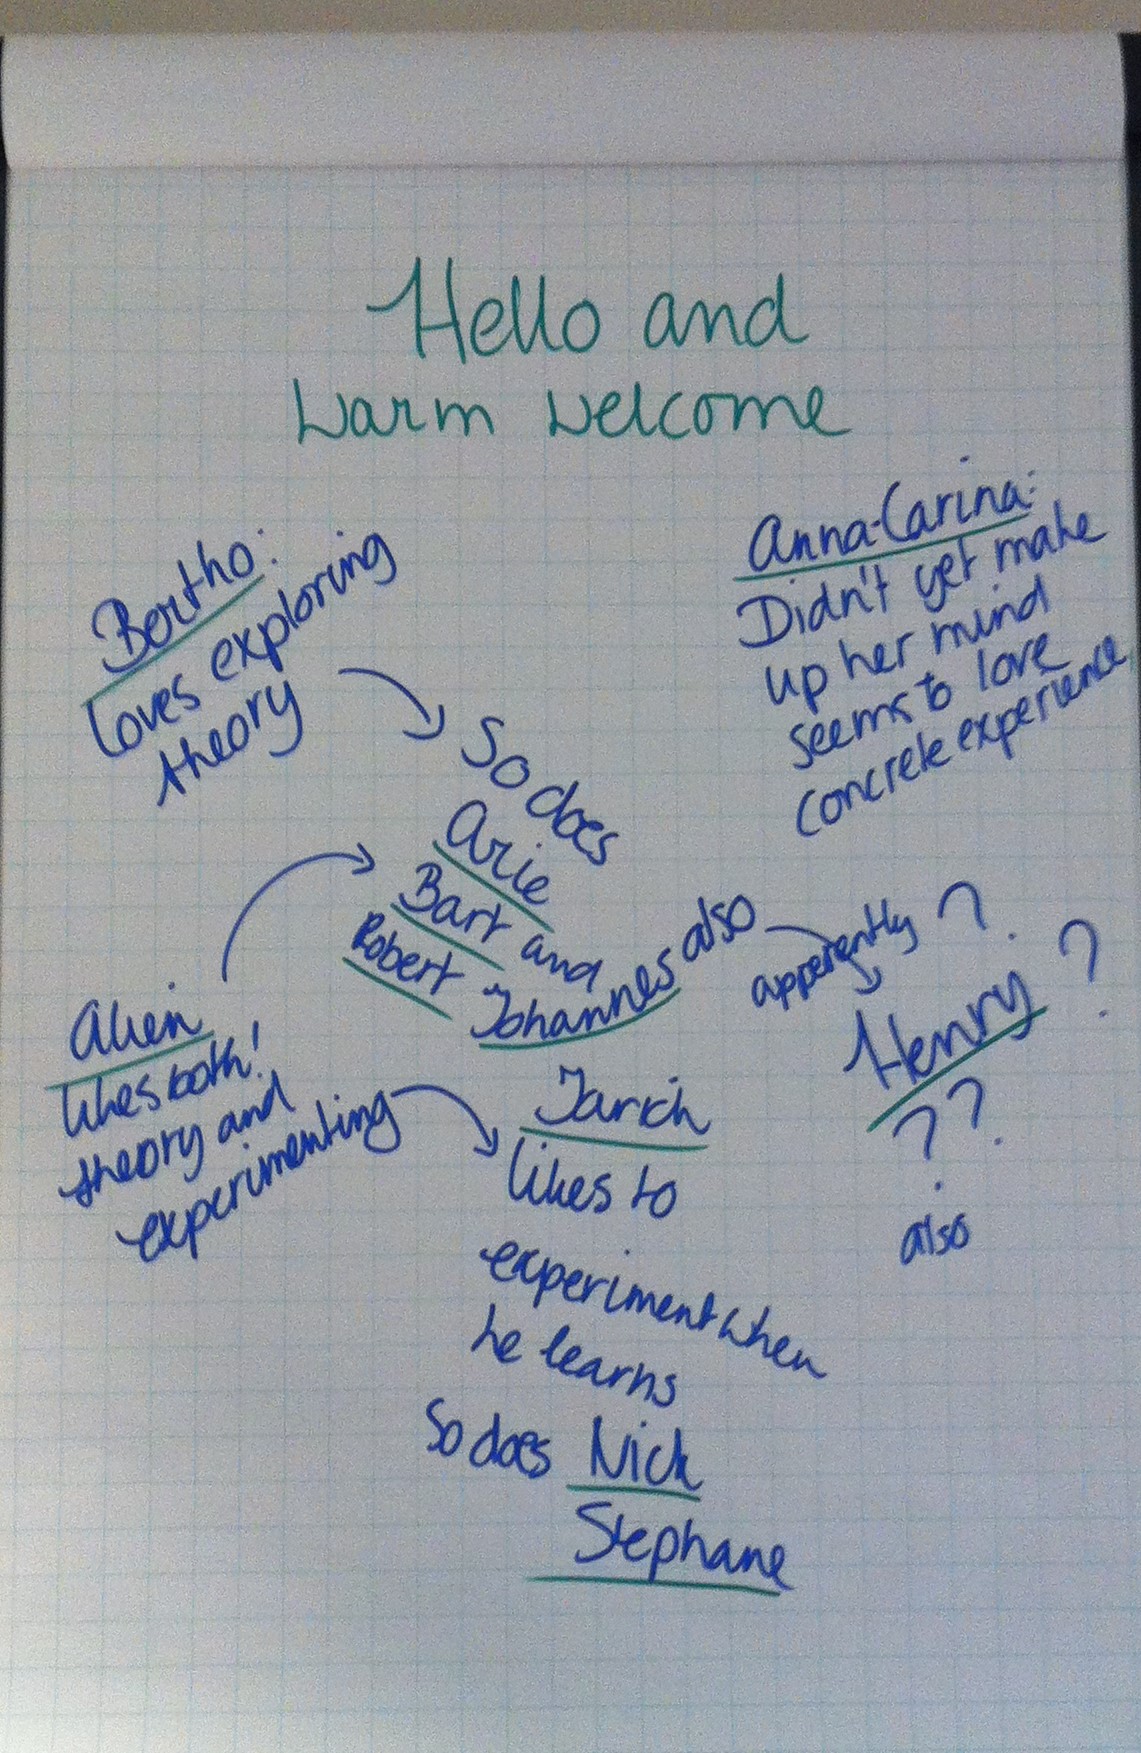 Hello and
warm welcome
Bertho:
loves exploring
theory
Anna-Carina:
Didn't yet make
up her mind
seems to love
concrete experience
So does
Arie
Bart and
Robert
Johannes also
apperently ?
Henry ?
? ?
also
Alien
likes both!
theory and
experimenting
Tarich
likes to
experiment when
he learns
So does Nick
Stephane